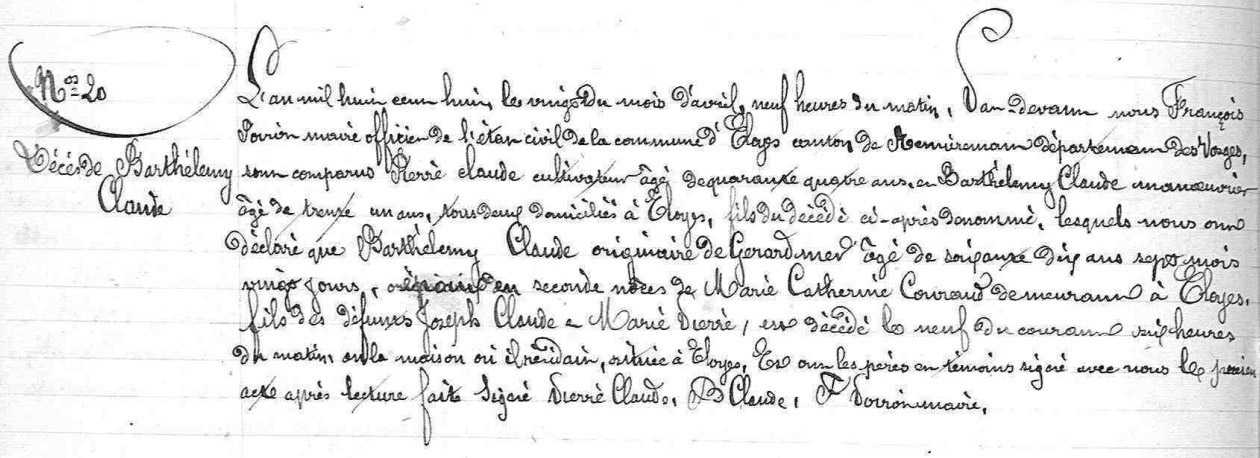 Nos 20
Décès de Barthélemy
Claude
L'an mil huit cent huit, le vingt du mois d'avril, neuf heures du matin, Par devant nous François
maire officier de l'état civil de la commune d'Eloyes canton de Remiremont département des Vosges,
sont comparus Pierre Claude cultivateur âgé de quarante quatre ans, et Barthélemy Claude manoeuvrier
âgé de trente un ans, tous deux domiciliés à Eloyes, fils du décédé ci-après dénommé, lesquels nous ont
déclaré que Barthélemy Claude originaire de Gerardmer âgé de soixante dix ans sept mois
vingt jours, époux en seconde noces de Marie Catherine Couraud demeurant à Eloyes,
fils des défunts Joseph Claude et Marie Pierre, est décédé le neuf du courant six heures
du matin, en la maison où il résidait, située à Eloyes, Et ont les pères et témoins signé avec nous le présent
acte après lecture faite Signé Pierre Claude, B Claude, F maire.